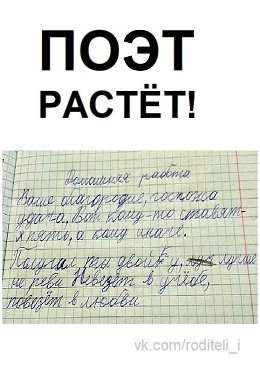 ПОЭТ
РАСТЁТ!
Домашняя работа
Ваше благородие, госпожа
удача. Вот кому-то ставят-
х пять, а кому иначе.
Получил ты двойку, лучше
не реви Невезёт в учёбе,
повезёт в любви
vk.com/roditeli_i